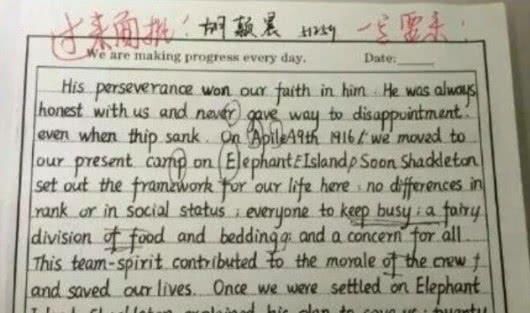 过来面批! 胡颖晨 一定要来!
We are making progress every day. Date:
His perseverance won our faith in him. He was always
honest with us and never gave way to disappointment.
even when thip sank. On Apile 19th 1916, we moved to
our present camp on Elephant Island, Soon Shackleton
set out the framework for our life here: no differences in
rank or in social status; everyone to keep busy; a fairy
division of food and bedding; and a concern for all.
This team-spirit contributed to the morale of the crew
and saved our lives. Once we were settled on Elephant
Island, Shackleton explained his plan to save us: twenty